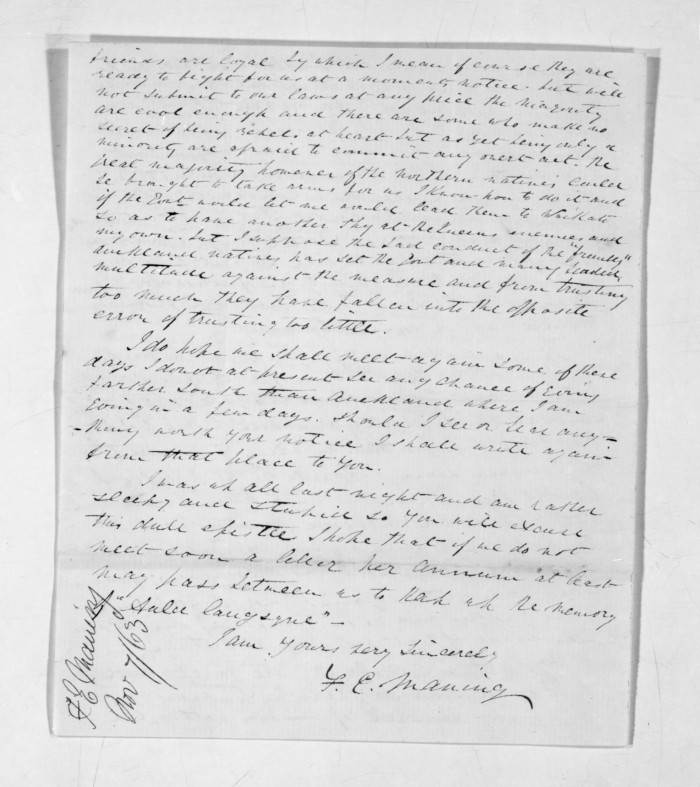 friends are loyal by which I mean of course they are
ready to fight for us at a moments notice. but will
not submit to our laws at any price the majority
are cool enough and there are some who make no
secret of being rebels at heart but as yet being only a
minority are afraid to commit any overt act. The
great majority however of the northern natives could
be brought to take arms for us I know how to do it and
if the Govt would let me would lead them to Waikato
so as to have another shy at the Queens enemies and
my own. but I suppose the bad conduct of the "friendly"
auckland natives has set the Govt and many
multitude against the measure and from trusting
too much they have fallen into the opposite
error of trusting too little.
I do hope we shall meet again some of these
days I do not at present see any chance of going
farther south than Auckland where I am
going in a few days. Should I see or hear any-
-thing worth your notice I shall write again
from that place to you.
I was up all last night and am rather
sleepy and stupid so you will excuse
this dull epistle I hope that if we do not
meet soon a letter per annum at least
may pass between us to keep up the memory
of "Auld langsyne" -
I am Yours very Sincerely
F. E. Maning
F E Maning
Nov 7/63